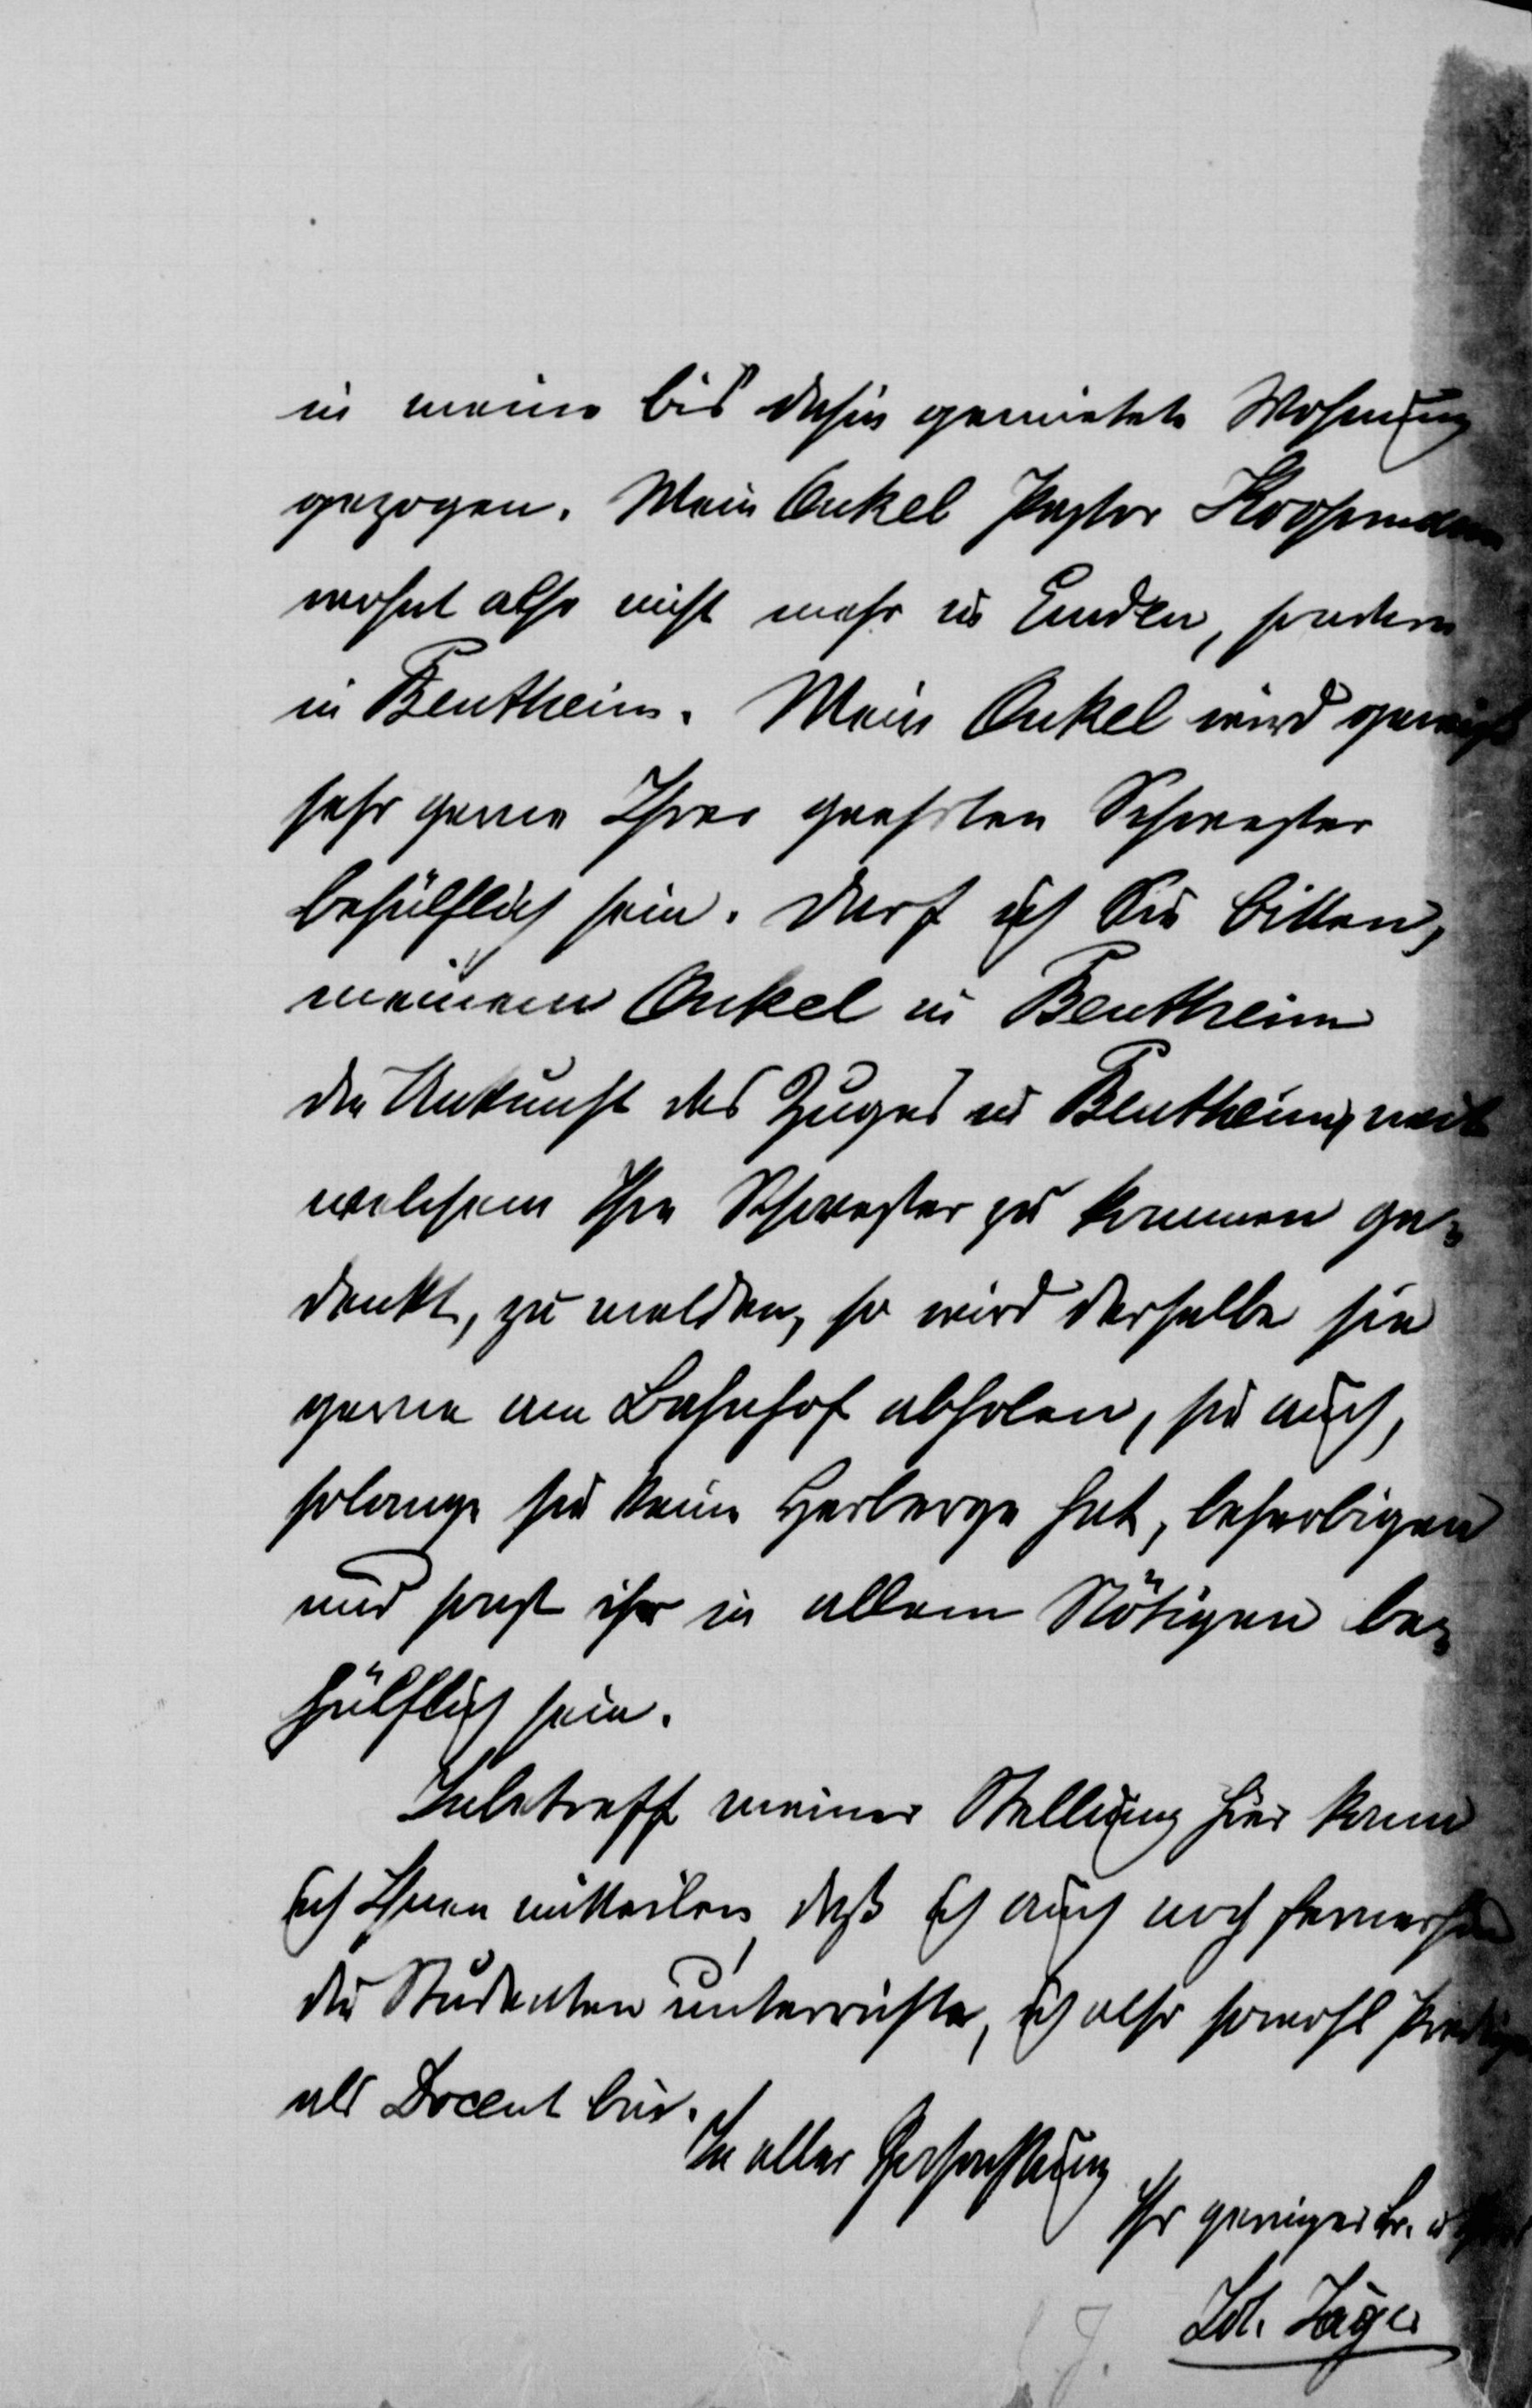 in meine bis dahin gemietete Wohnung
gezogen. Mein Onkel Pastor
wohnt also nicht mehr in Emden, sondern
in Bentheim. Mein Onkel wird gewiß
sehr gerne Ihrer geehrten Schwester
behülflich sein. Darf ich Sie bitten,
meinem Onkel in Bentheim
die Ankunft des Zuges in Bentheim, mit
welchem Ihre Schwester zu kommen ge-
denkt, zu melden, so wird derselbe sie
gerne am Bahnhof abholen, sie auch,
solange sie keine Herberge hat, beherbigen
und sonst ihr in allem Nötigen be-
hülflich sein.
Inbetreff meiner Stellung hier kann
ich Ihnen mitteilen, daß ich auch noch fernerhin
die Studenten unterrichte, ich also sowohl Prediger
als Docent bin.
In aller Hochachtung
Ihr geringer Br.
Joh. Jäger